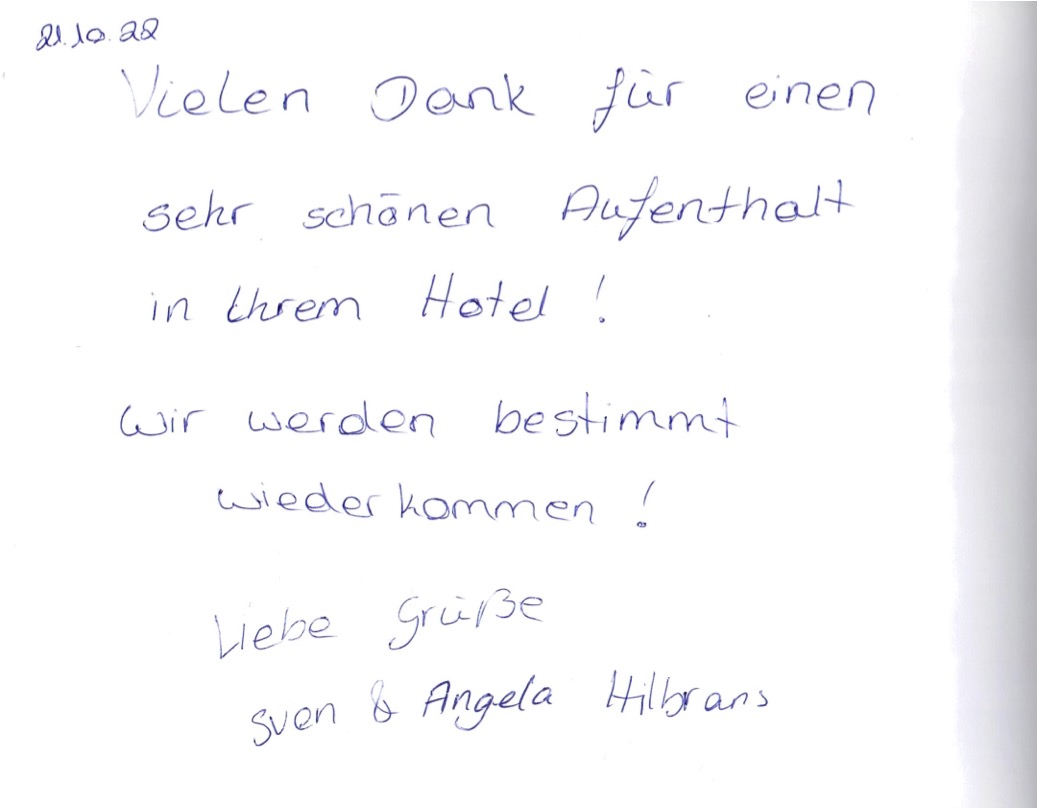 21.10.22
Vielen Dank für einen
sehr schönen Aufenthalt
in Ihrem Hotel !
Wir werden bestimmt
wiederkommen !
Liebe Grüße
Sven & Angela Hilbrans